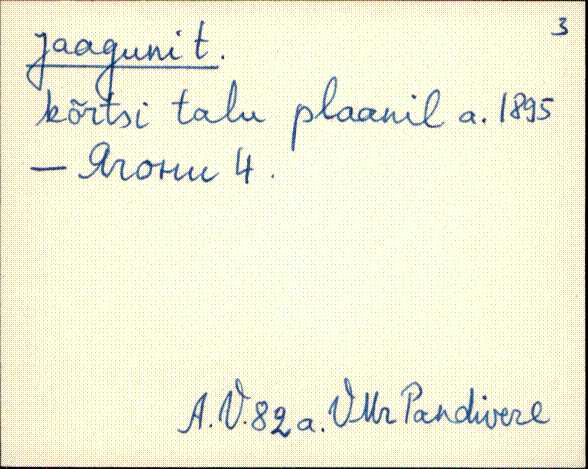 3
Jaaguni t.
kõrtsi talu plaanil a. 1895
— Ягони 4.
A.V. 82 a. VMr Pandivere